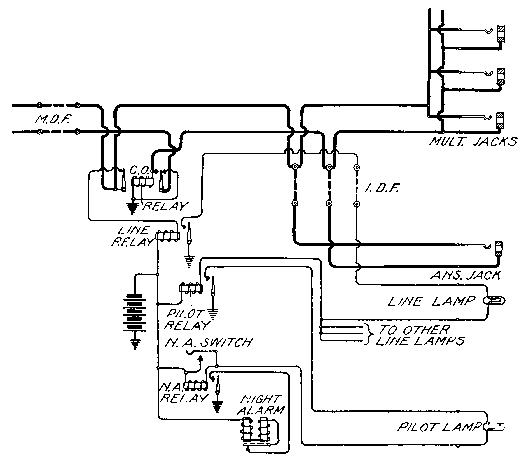 M.D.F.
MULT. JACKS
C.O.
RELAY
I.D.F.
LINE
RELAY
ANS. JACK
LINE LAMP
PILOT
RELAY
TO OTHER
LINE LAMPS
N.A. SWITCH
N.A.
RELAY
NIGHT
ALARM
PILOT LAMP